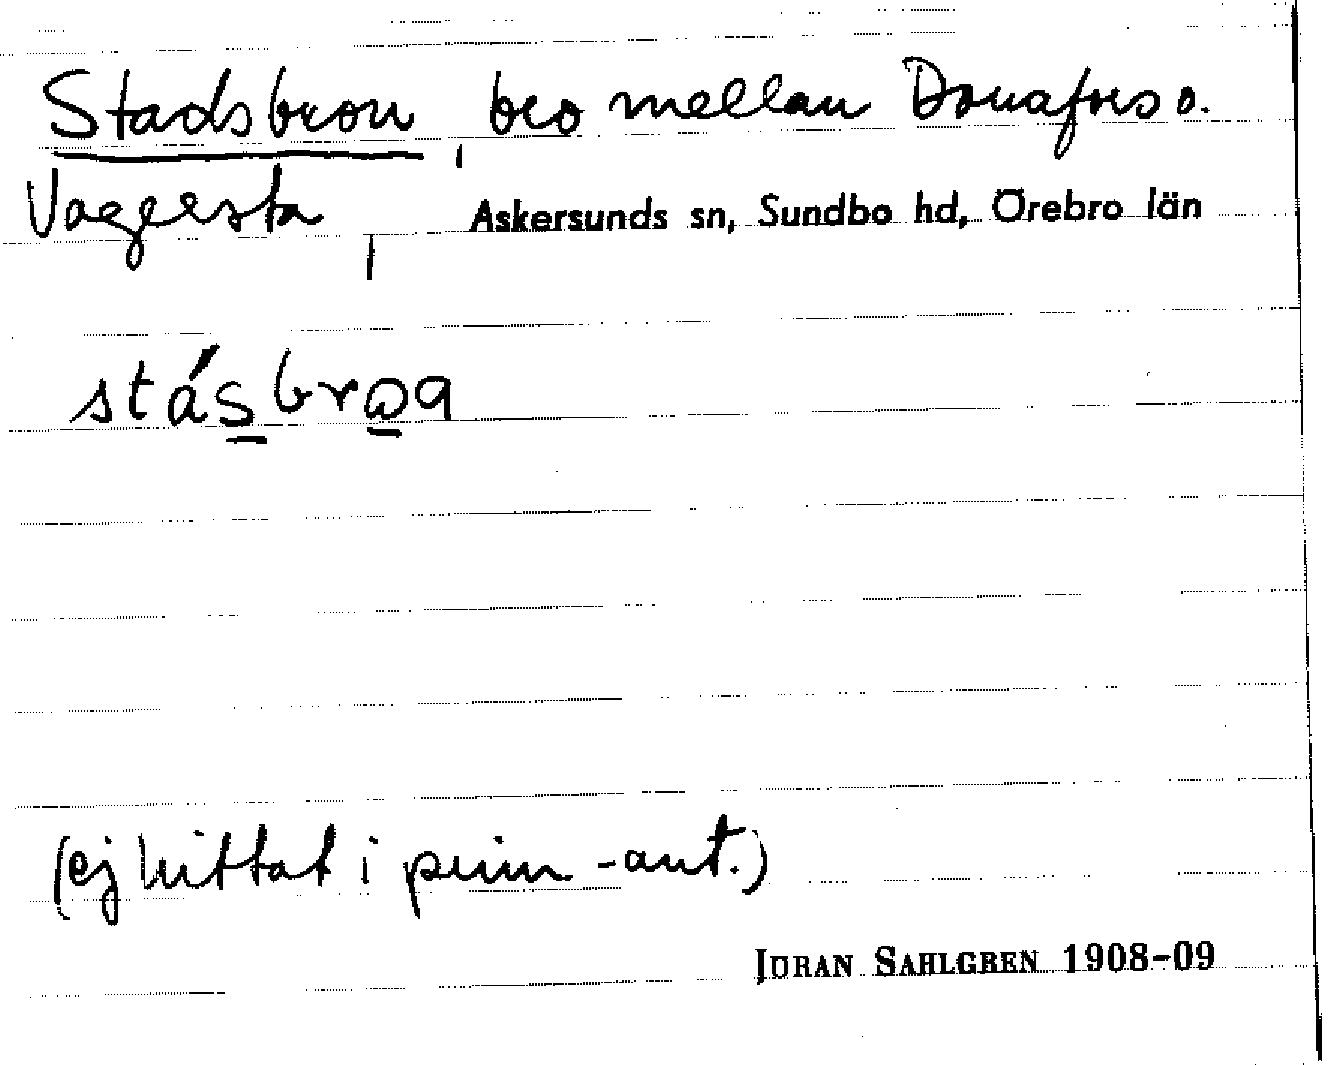 Stadsbron, bro mellan Donafors o.
Vaggersta, Askersunds sn, Sundbo hd, Örebro län
stásbrωa
(ej hittat i prim-ant.)
JÖRAN SAHLGREN 1908-09